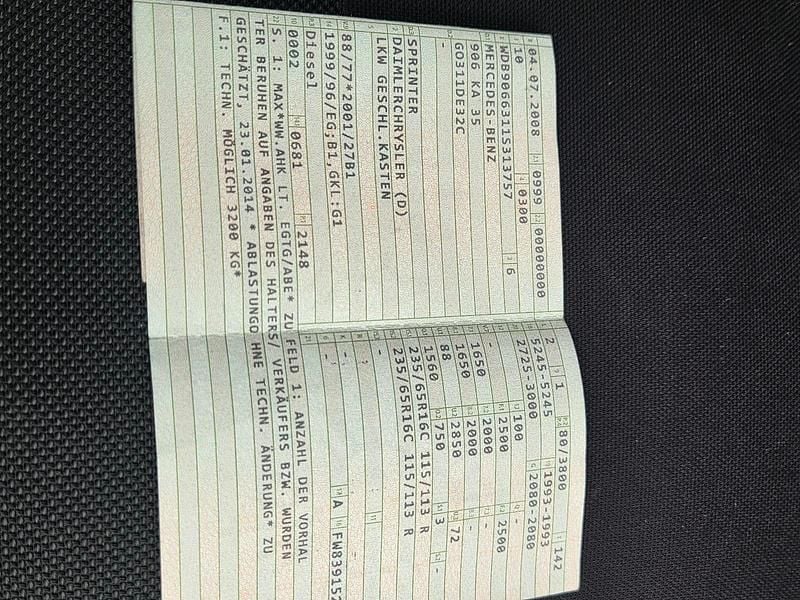 04.07.2008 0999 00000000
10 0300
WDB9066311S313757 6
MERCEDES-BENZ
906 KA 35
GO311DE32C
-
SPRINTER
DAIMLERCHRYSLER (D)
LKW GESCHL.KASTEN
88/77*2001/27B1
1999/96/EG;B1,GKL:G1
Diesel
0002 0681 2148
2 1 80/3800 142
5245-5245 1993-1993
2725-3000 2080-2080
- 100 -
- 2500 2500
1650 2000 -
1650 2000 -
88 2850 72
1560 750 3 -
235/65R16C 115/113 R
235/65R16C 115/113 R
-
-
- A
- FW839152
S. 1: MAX*WW.AHK LT. EGTG/ABE* ZU FELD 1: ANZAHL DER VORHAL
TER BERUHEN AUF ANGABEN DES HALTERS/ VERKÄUFERS BZW. WURDEN
GESCHÄTZT, 23.01.2014 * ABLASTUNGO HNE TECHN. ÄNDERUNG* ZU
F.1: TECHN. MÖGLICH 3200 KG*